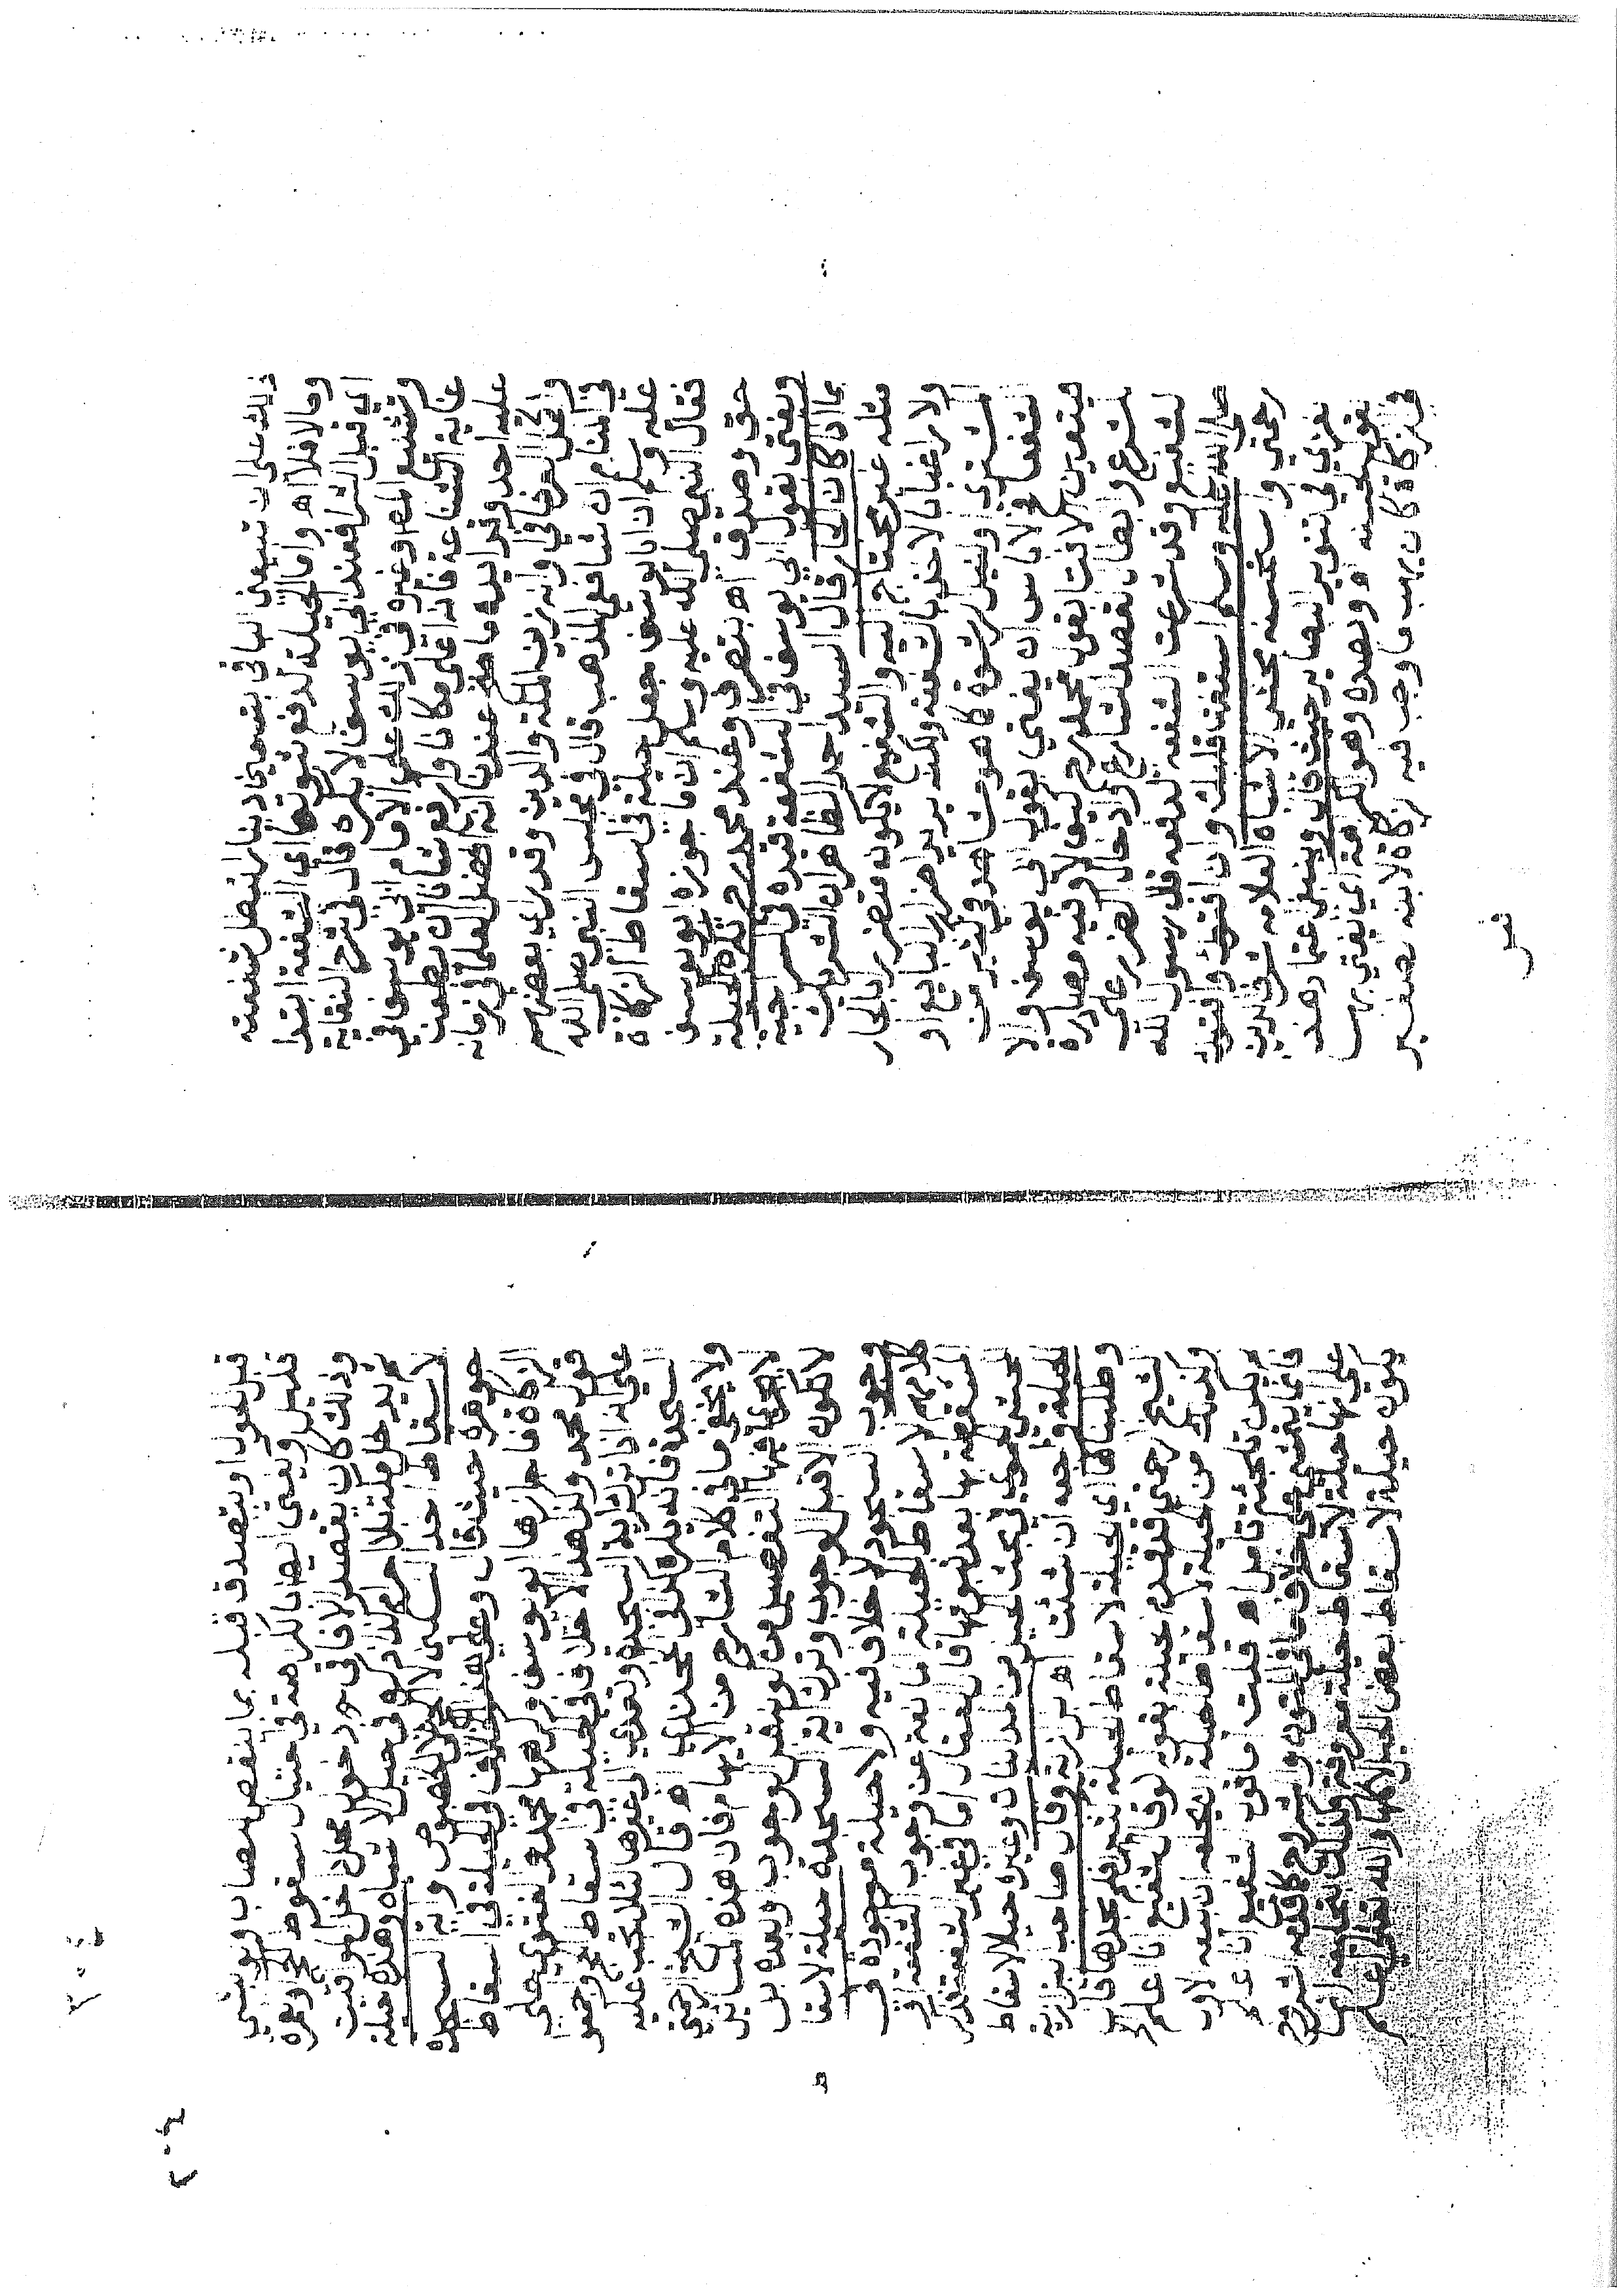 ذلك على ان تبيعني الباقي بتسعمائة دينار تبطل شفعته
ومالا فلا اه واما الحيلة لدفع ثبوتها اي الشفعة ابتدا
اي قبل الشرا فعند ابي يوسف لا يكره قال في شرح النقاية
وتشنيع المص وغيره في ذلك على الامام ابي يوسف في
غاية الشناعة فانه اعلى مكانا وارفع شانا ان يطعن
عليه احد وقد ايده ما صح عندنا انه افضل العلما في زمانه
واكمل العرفا في وانه زين الملة والدين وقد راي بعضهم
في المنام ان شافعي المذهب قال في مجلس النبي صلى الله
عليه وسلم ان ابا يوسف جعل حيلة في اسقاط الزكاة
فقال النبي صلى الله عليه وسلم ان ما جوزه ابو يوسف
حق وصدق اه بتصرف وعند محمد رح تكره الحيلة
ويفتى بقول ابي يوسف في الشفعة قيده في السراجية
بما اذا كان الجار قال السيد احمد الظاهر ان الشريك
مثله غير محتاج اليه والشفيع لا يكون متضررا بالجار
ولا راغبا بالاخذ بالشفعة ولكنه يريد اضرار البايع او
المشتري او لنيل الرشوة كما هو مشاهد في كثير من
الشفعا فلا باس ان يفتي بقول ابي يوسف والا
فيتعين الافتا بقول محمد رح كيف لا وفيه مصادرة
للشرع وابطال لقصد الشارع وادخال الضرر على
الشفيع وقد شرعت الشفعة لدفعه قال رسول الله
صلى الله عليه وسلم استفت قلبك وان افتوك وافتوك
رحمتي واستحسنه محشي الاشباه العلامه شرف الدين
لغزي في تنوير البصاير حيث قال وينبغي اعتماد هذا
القول لحسنه اه وبضده وهو الكراهة اي يفتى بها
في الزكاة كان يهب ما وجب فيه زكاة لابنه صغير
قبل
٢٠٤
قبل الحول او يتصدق قبله بما ينقص النصاب او يشتري
قليل ويفتى ايضا بالكراهة في احتيال سقوط الحج والعمرة
وذلك كان يقصد الافاقي مريد دخول محل داخل الميقات
ثم يدخل مكة بلا احرام كذا ذكره في حيل الاشباه وهذه حيلة
لاسقاط احد النسكين لا الحج بالخصوص واية السجدة
جوهره حيث قال وعلى هذا الخلاف في الحيلة في اسقاط
الزكاة فاجازها ابو يوسف وكرهها محمد والفتوى على
قول محمد وكذا هذا الاختلاف في الحيلة في اسقاط الحج وجمعوا
على انه اذا ترك اية السجدة وتعدى الى غيرها لئلا تجب عليه
السجدة فانه يكره كذا في الخجندي اه قال الشيخ الرحمتي
ولا يخفى ما في كلام الشارح من الابهام فان هذه المسايل
لا يجري فيها التفصيل من كونه قبل الوجوب وبعده بل
لا تكون الا قبل الوجوب وترك اية السجدة حيلة لاسقا
وجوب السجود لا خلاف فيه ولا حيلة موجودة في
كلامهم لاسقاط الحيلة المانعة عن وجوب الشفعة او
المسقطة لها بعد ثبوتها قال اما في غير الشفعة فذكر
المحشي الحموي في بحث الحيل من مداينات وغيره حيلا لاسقاط
الحيلة ان شئت اه بزازية وقال صاحب البزازية
وطلبناها اي حيلة لاسقاط الحيلة كثيرا فلم نجدها قال
الشيخ الرحمتي قد تقدم عنه بقوله لو قال الشفيع انا اعلم
ولذلك من حيلة اسقاط الحيلة ان بيعه لاب
ليس تلجئة تامل اه قلت ما قول الشفيع انا اعلم
فانما يتمشى على خلاف ما في المتون والشروح كما قدمه الشرح
على انها حيلة لاسقاط حيلة معروفة
يكون حيلة لاسقاط بعض الحيل لا كلها والله تعالى اعلم